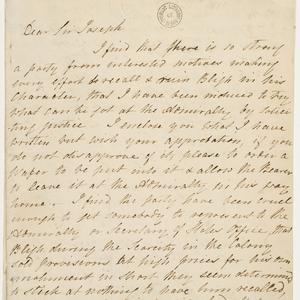 Dear Sir Joseph
I find that there is so strong
a party from interested motives making
every effort to recall & ruin Bligh in his
Character, that I have been induced to try
what can be got at the Admiralty by solici
ting justice. I enclose you what I have
written but wish your approbation, if you
do not disapprove of it, please to order a
Wafer to be put into it & allow the Bearer
to leave it at the Admiralty in his way
home. I find the party have been cruel
enough to get somebody to represent to the
Admiralty or Secretary of State's Office, that
Bligh during the Scarcity in the Colony
sold provisions at high prices for his own
emolument in short they seem determined
to stick at nothing to have him recalled